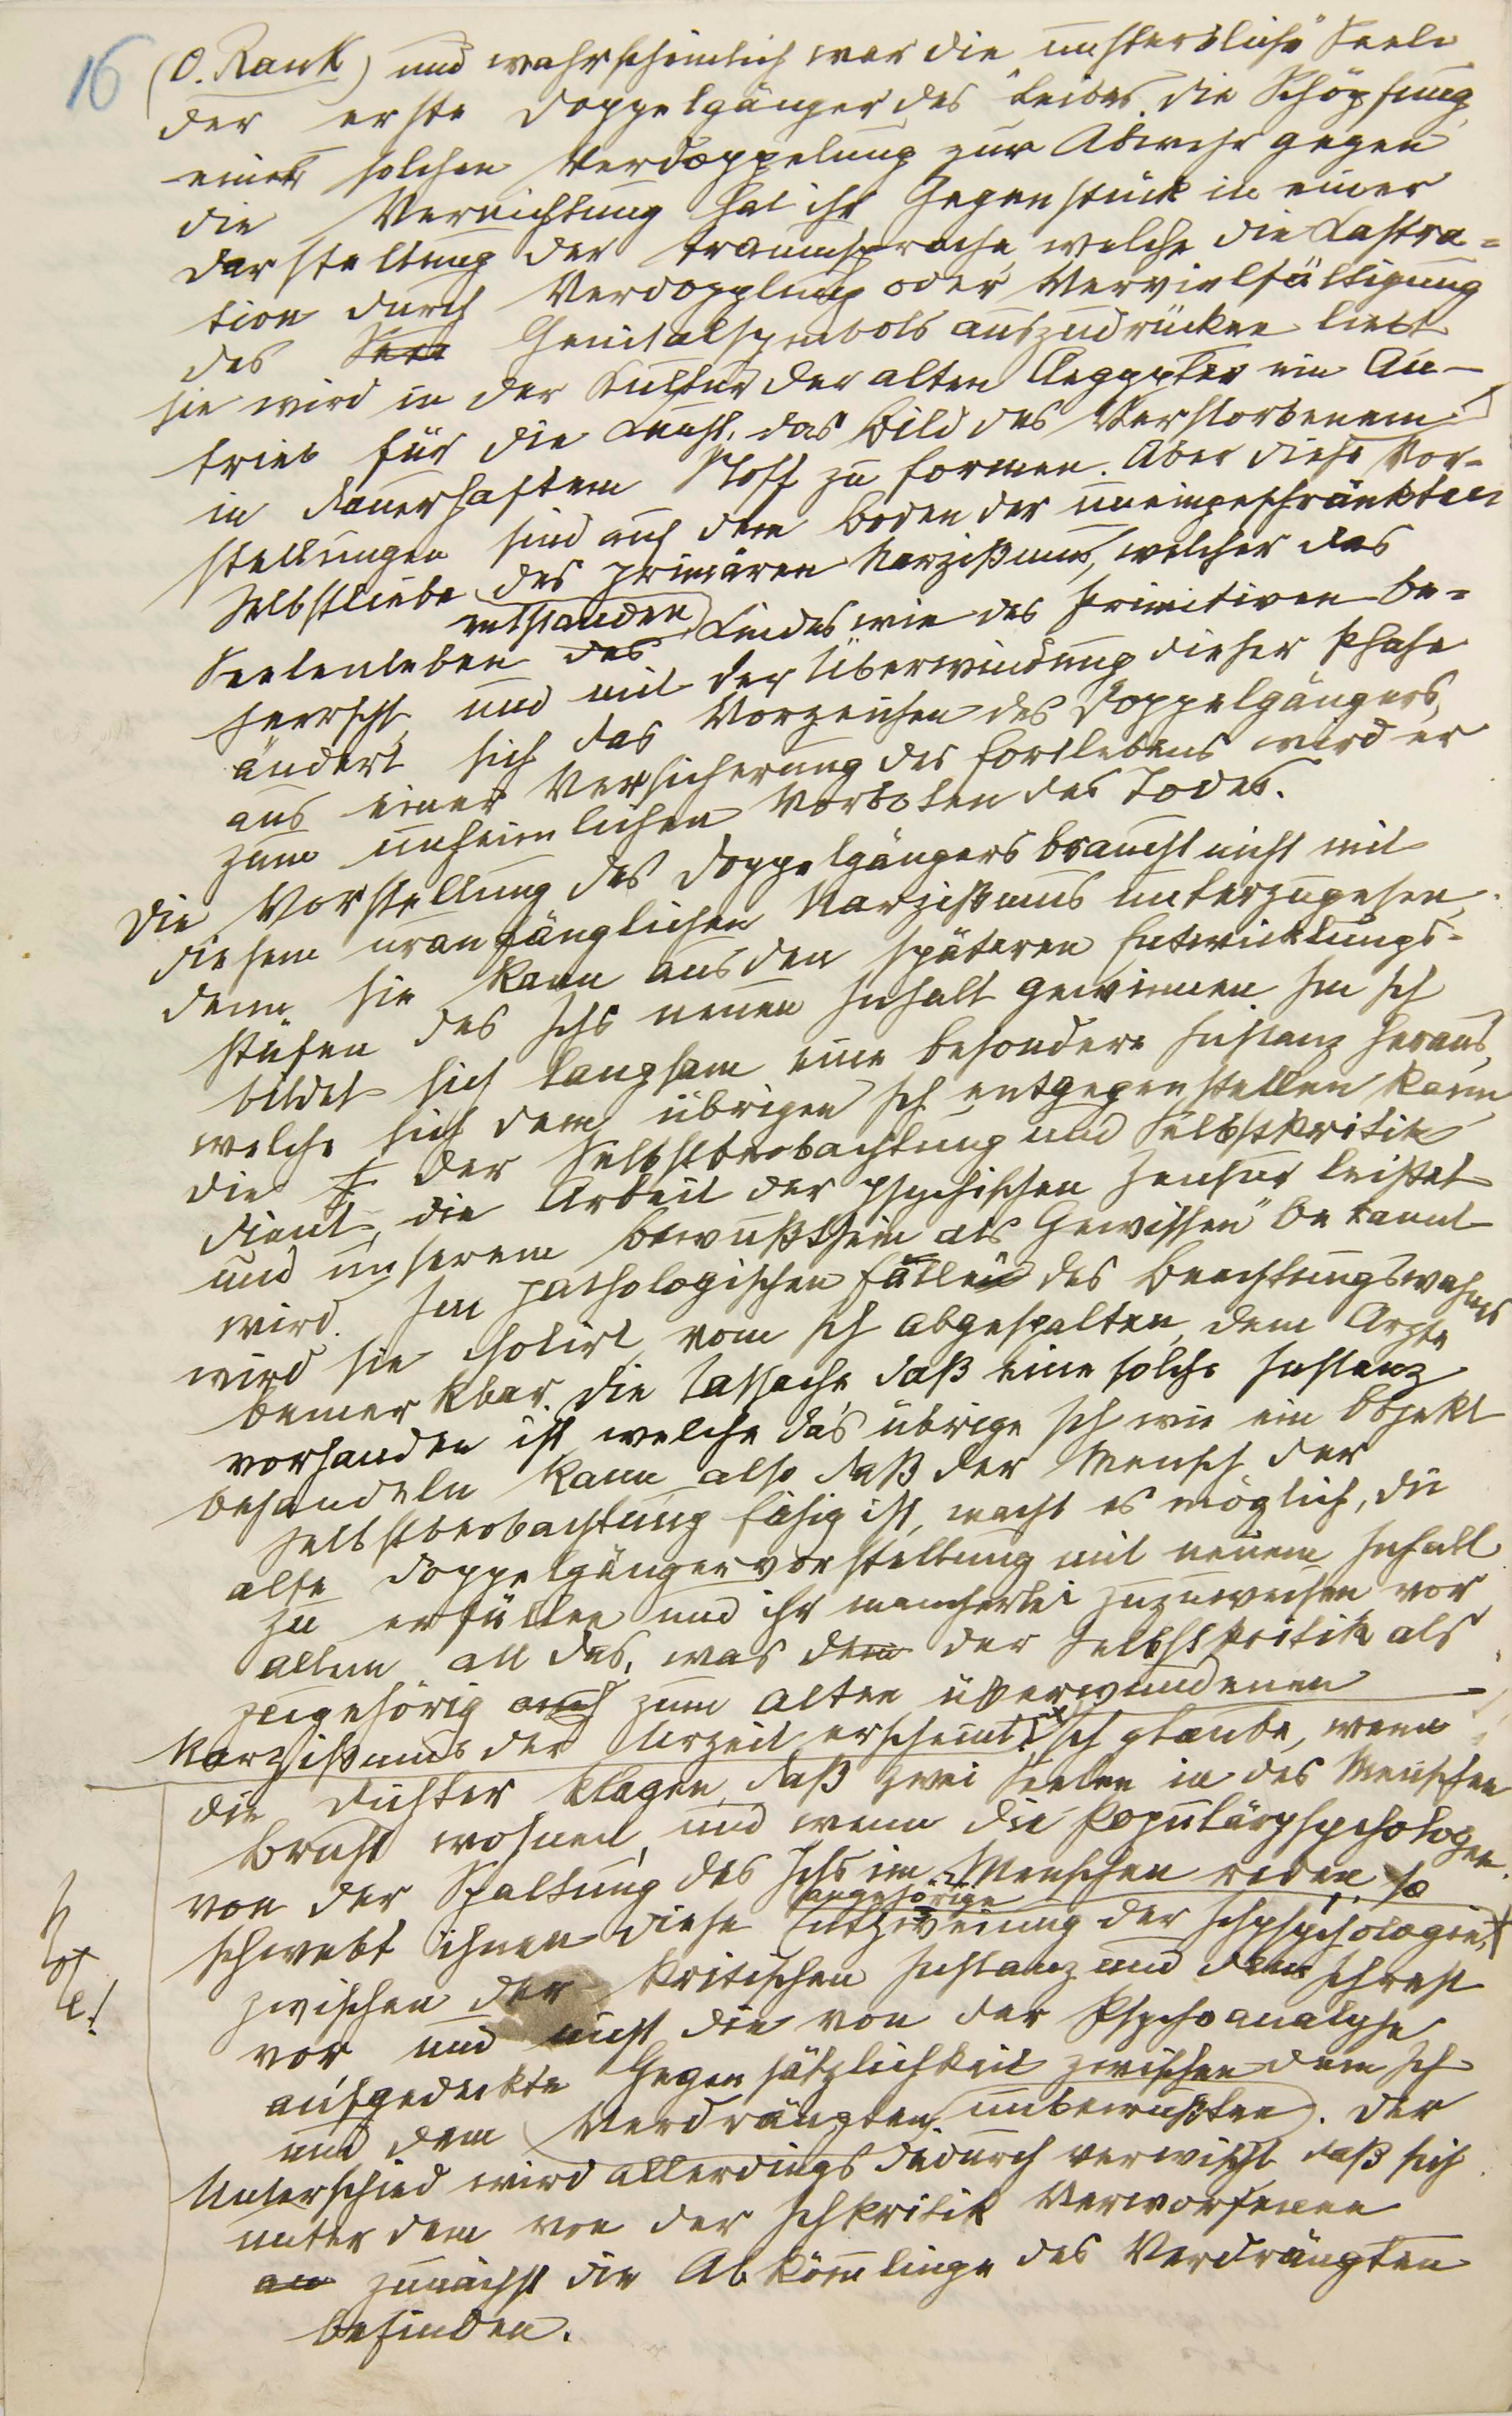 16 (O. Rank) und wahrscheinlich war die „unsterbliche" Seele
der erste Doppelgänger des Leibes. Die Schöpfung
einer solchen Verdoppelung zur Abwehr gegen
die Vernichtung hat ihr Gegenstück in einer
Darstellung der Traumsprache, welche die Kastra=
tion durch Verdopplung oder Vervielfältigung
des Genitalsymbols auszudrücken liebt
sie wird in der Kultur der alten Aegypter ein An-
trieb für die Kunst, das Bild des Verstorbenen
in dauerhaftem Stoff zu formen. Aber diese Vor-
stellungen sind auf dem Boden der uneingeschränkten
Selbstliebe entstanden, des primären Narzißmus, welcher das
Seelenleben des Kindes wie des Primitiven be=
herrscht, und mit der Überwindung dieser Phase
ändert sich das Vorzeichen des Doppelgängers,
aus einer Versicherung des Fortlebens wird er
zum unheimlichen Vorboten des Todes.
Die Vorstellung des Doppelgängers braucht nicht mit
diesem uranfänglichen Narzißmus unterzugehen,
denn sie kann aus den späteren Entwicklungs-
stufen des Ichs neuen Inhalt gewinnen. Im Ich
bildet sich langsam eine besondere Instanz heraus,
welche sich dem übrigen Ich entgegenstellen kann,
die der Selbstbeobachtung und Selbstkritik
dient, die Arbeit der psychischen Zensur leistet
und unserem Bewußtsein als „Gewissen" bekannt
wird. Im pathologischen Falle des Beachtungswahnes
wird sie isolirt, vom Ich abgespalten, dem Arzte
bemerkbar. Die Tatsache, daß eine solche Instanz
vorhanden ist, welche das übrige Ich wie ein Objekt
behandeln kann, also daß der Mensch der
Selbstbeobachtung fähig ist, macht es möglich, die
alte Doppelgängervorstellung mit neuem Inhalt
zu erfüllen und ihr mancherlei zuzuweisen, vor
allem all das, was dem der Selbstkritik als
zugehörig auch zum alten überwundenen
Narzißmus der Urzeit erscheint. Ich glaube, wenn
die Dichter klagen, daß zwei Seelen in des Menschen
Brust wohnen, und wenn die Populärpsychologen
von der Spaltung des Ichs im Menschen reden, so
schwebt ihnen diese Entzweiung, der Ichpsychologie angehörige,
zwischen der kritischen Instanz und dem Ichrest
vor und nicht die von der Psychoanalyse
aufgedeckte Gegensätzlichkeit zwischen dem Ich
und dem Verdrängten, unbewußten. Der
Unterschied wird allerdings dadurch verwischt, daß sich
unter dem von der Ichkritik Verworfenen
an zunächst die Abkömmlinge des Verdrängten
befinden.